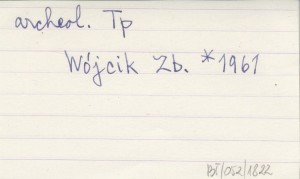 archeol. Tp
Wójcik Zb. *1961
BT/052/1822